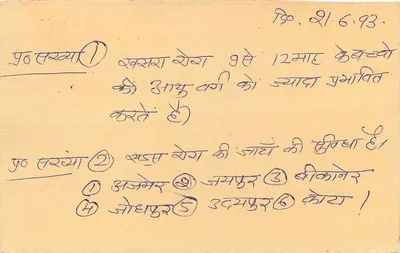 दि. 21.6.93.
प्र० सख्या ① खसरा रोग 9 से 12 माह के बच्चो
की आयु वर्ग को ज्यादा प्रभावित
करते है)
प्र० सख्यां ② एड्स रोग की जाँच की सुविधा है।
① अजमेर ② जयपुर ③ बीकानेर
④ जोधपुर ⑤ उदयपुर ⑥ कोटा।